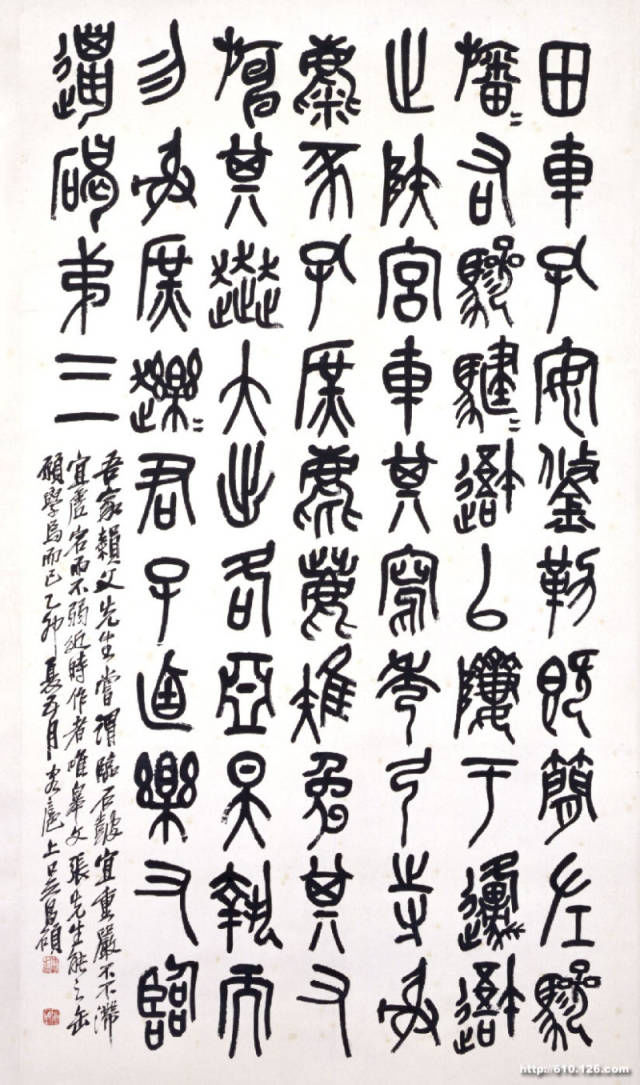 田車孔安鋚勒既簡左驂
旛=右驂騝=䢐㠯隮于邍䢐
止陕宮車其寫秀弓寺射
麋豕孔庶麀鹿雉兔其又
其奔大出各亞昊執而
勿射庶趯=君子迺樂又臨
遺碣弟三
吾家賴父先生嘗謂臨石鼓宜重嚴而不滯
宜虛宕而不弱近時作者唯皋文張先生能之缶
願學焉而已乙卯夏五月客滬上吳昌碩
http://610.126.com